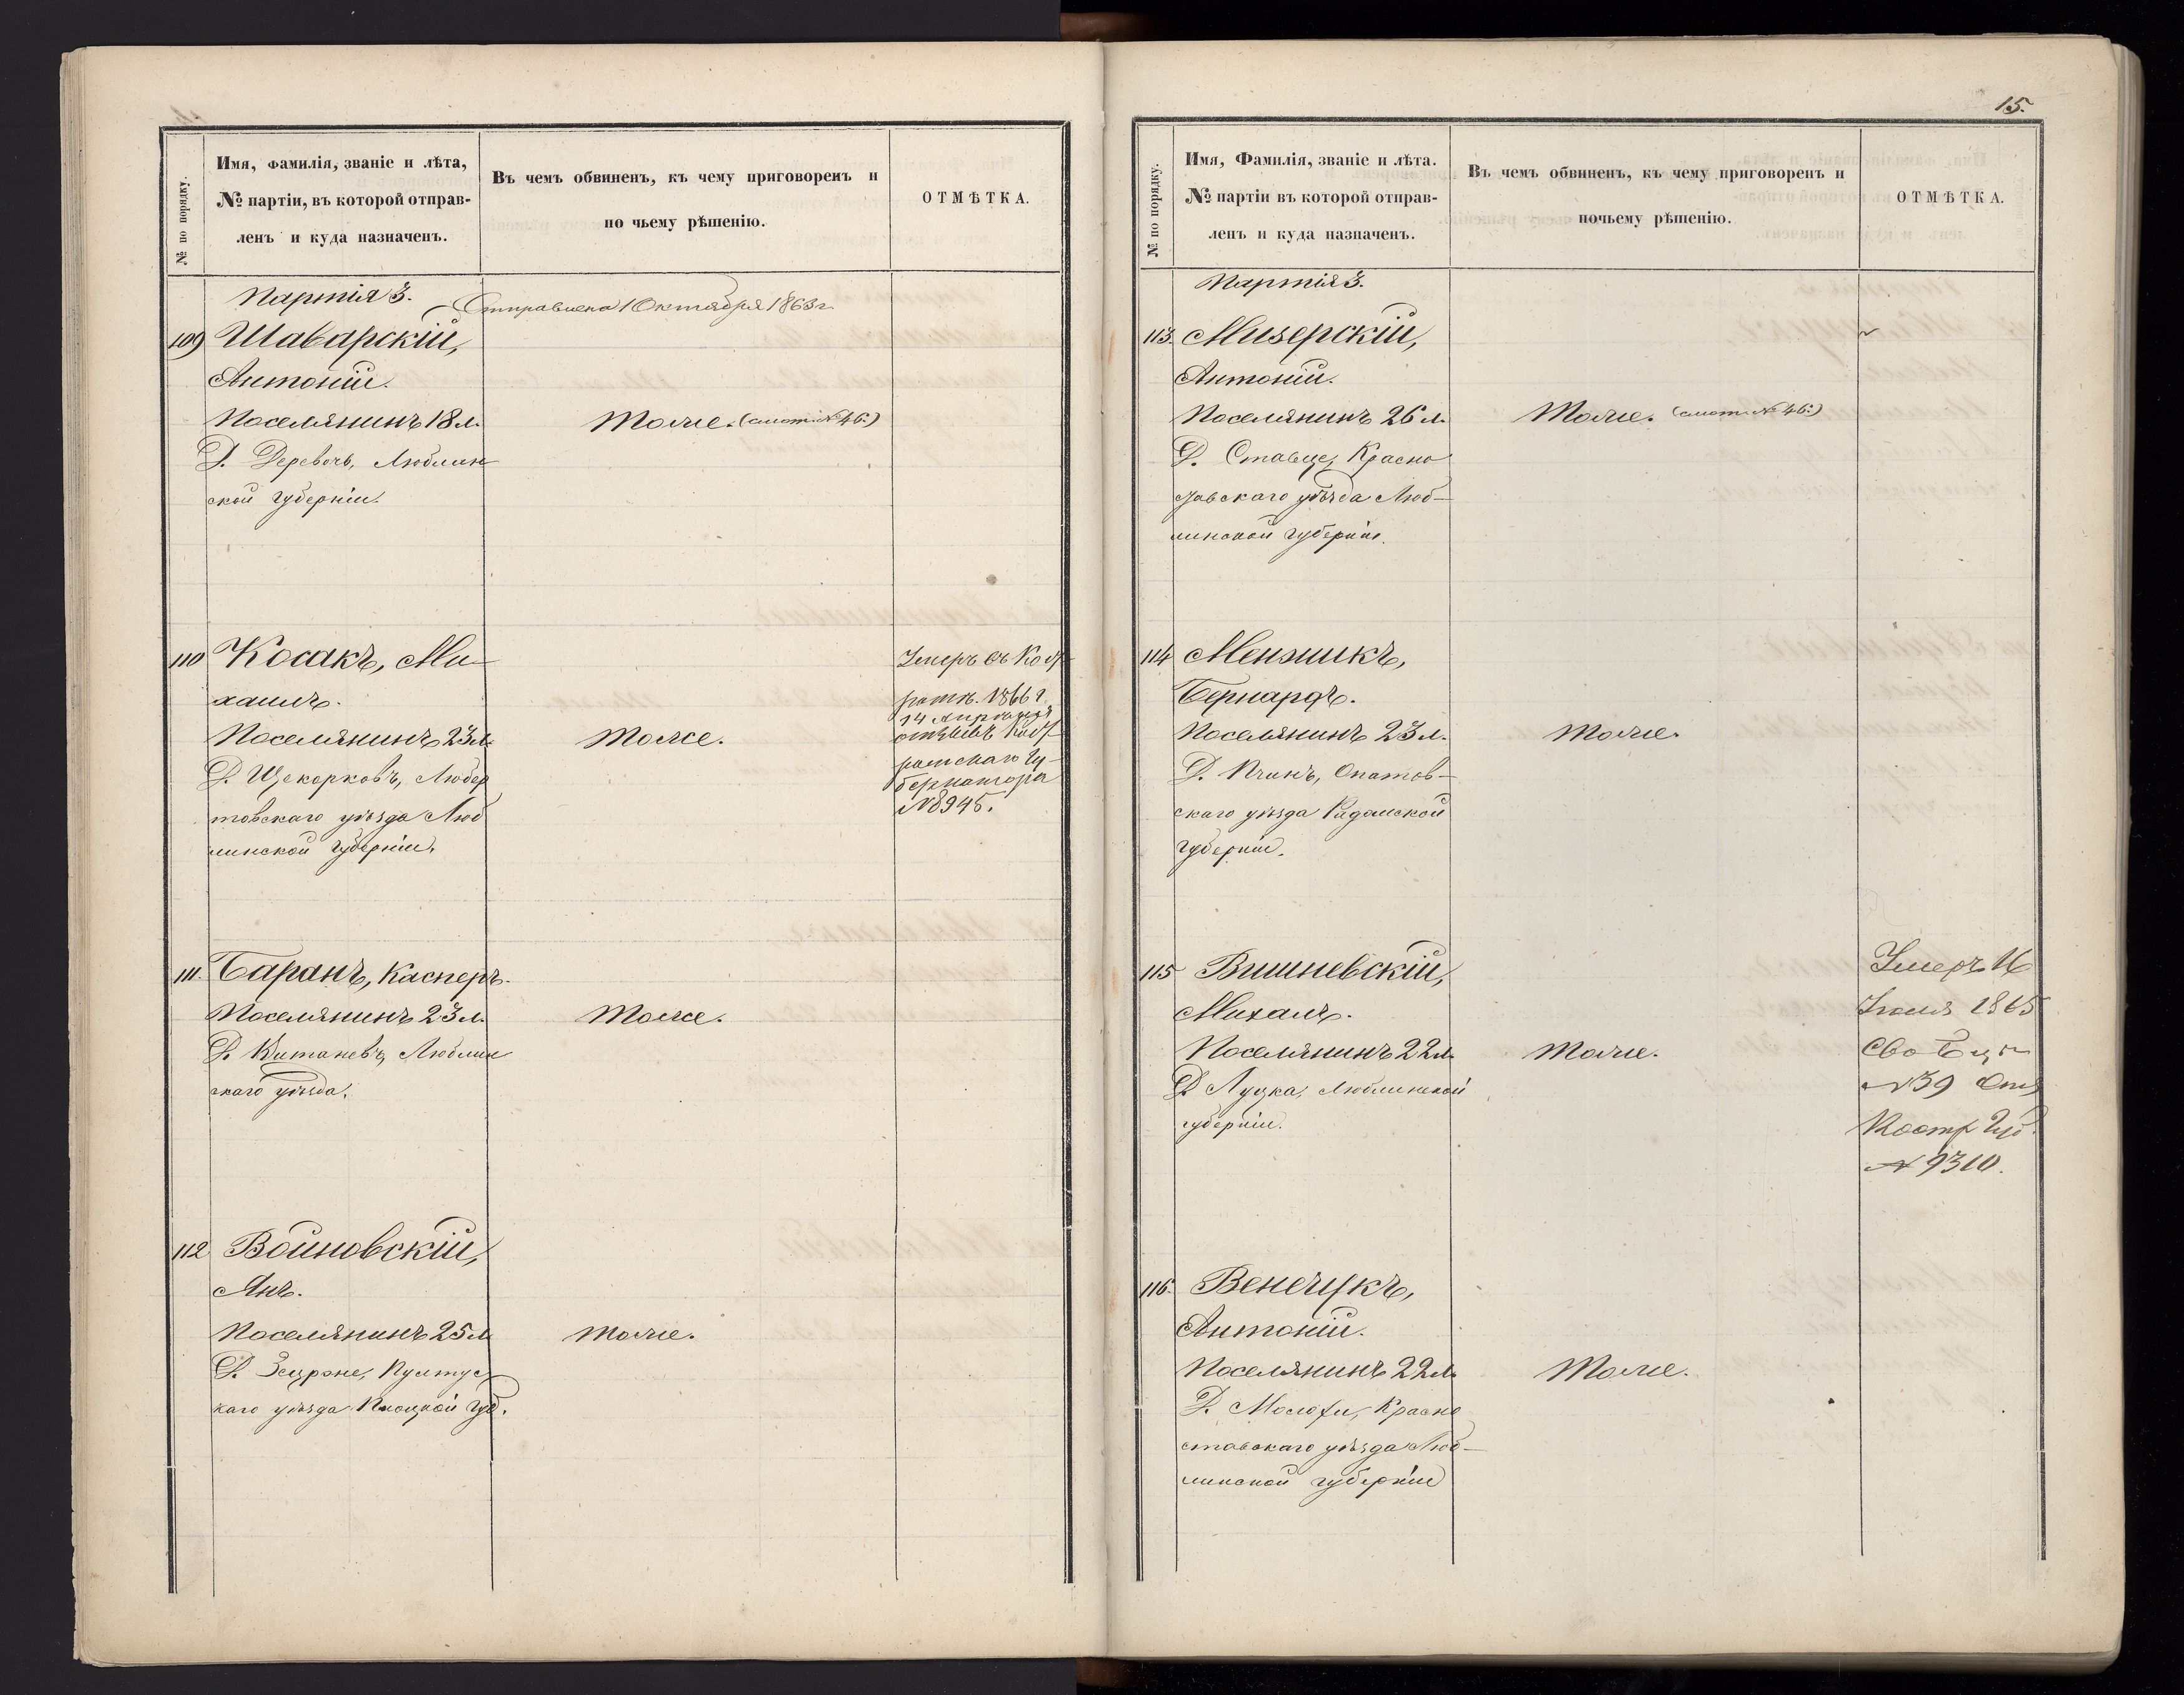 № по порядку.
Имя, фамилія, званіе и лѣта,
№ партіи, въ которой отправ-
ленъ и куда назначенъ.
Въ чемъ обвиненъ, къ чему приговоренъ и
по чьему рѣшенію.
ОТМѢТКА.
Партія 3. Отправлена 1 Октября 1863 г.
109 Шаварскій,
Антоній.
Поселянинъ 18 л. Тоже. (смот. № 46.)
Д. Деревочъ, Люблин
ской губерніи.
110 Косакъ, Ми-
хаилъ.
Поселянинъ 23 л. Тоже.
Д. Щекорковъ, Любар
товскаго уѣзда Люб
линской губерніи.
Умеръ въ
1866 г.
14
отзывъ
Гу-
бернатора
№ 8945.
111. Баранъ, Касперъ.
Поселянинъ 23 л. Тоже.
Д. Витаневъ, Люблин
скаго уѣзда.
112 Войновскій,
Янъ.
Поселянинъ 25 л. Тоже.
Д. Пултус
каго уѣзда Плоцкой губ.
15.
№ по порядку.
Имя, Фамилія, званіе и лѣта.
№ партіи въ которой отправ-
ленъ и куда назначенъ.
Въ чемъ обвиненъ, къ чему приговоренъ и
почьему рѣшенію.
ОТМѢТКА.
Партія 3.
113. Мизерскій,
Антоній.
Поселянинъ 26 л. Тоже. (смот. № 46.)
Д. Ставце, Красно
ставскаго уѣзда Люб-
линской губерніи.
114 Менжикъ,
Бернардъ.
Поселянинъ 23 л. Тоже.
Д. Пчинъ, Опатов-
скаго уѣзда Радомской
губерніи.
115 Вишневскій,
Михалъ.
Поселянинъ 22 л. Тоже.
Д. Луцка, Люблинской
губерніи.
Умеръ 16
Іюля 1865
№ 39 Отз
Костр Губ.
№ 9310.
116. Венечукъ,
Антоній.
Поселянинъ 22 л. Тоже.
Д. Красно
ставскаго уѣзда Люб-
линской губерніи